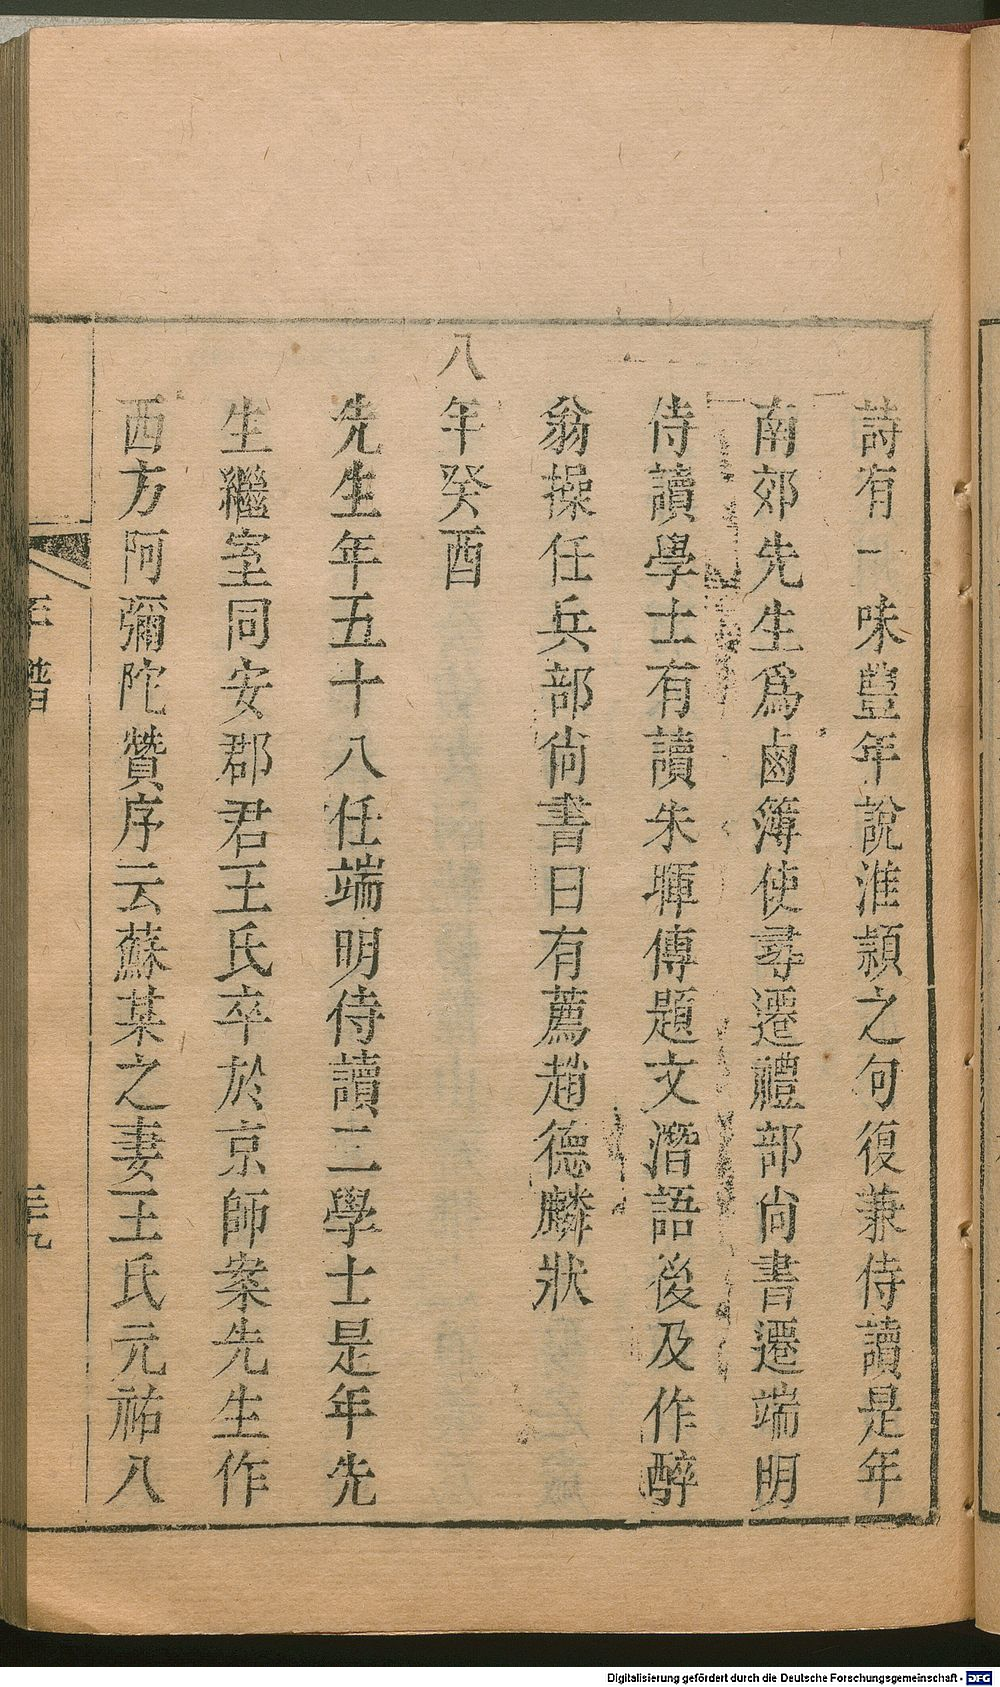 詩有一味豐年說淮潁之句復兼侍讀是年
南郊先生爲鹵簿使尋遷禮部尚書遷端明
侍讀學士有讀朱暉傳題文潛語後及作醉
翁操任兵部尚書日有薦趙德麟狀
八年癸酉
先生年五十八任端明侍讀二學士是年先
生繼室同安郡君王氏卒於京師案先生作
西方阿彌陀贊序云蘇某之妻王氏元祐八
年譜
三九
Digitalisierung gefördert durch die Deutsche Forschungsgemeinschaft - DFG